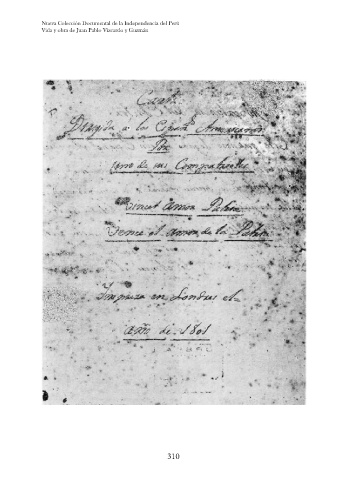 Nueva Colección Documental de la Independencia del Perú
Vida y obra de Juan Pablo Viscardo y Guzmán
Carta
Dirigida a los Españ.s Americanos
Por
Uno de sus Compatriotas
Vincet Amor Patriæ
Vence el Amor de la Patria
Impresa en Londres el
año de 1801
310